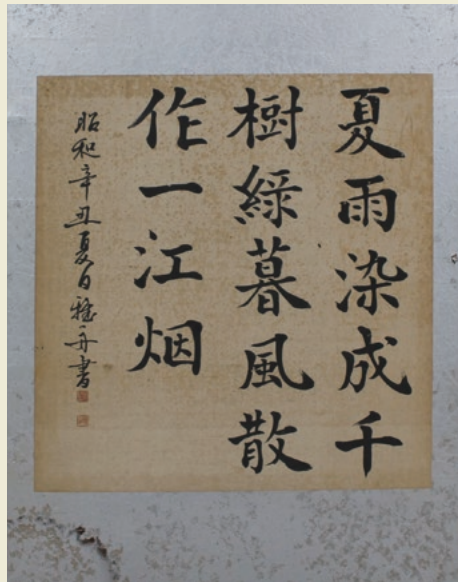 夏雨染成千
樹綠暮風散
作一江烟
昭和辛丑夏日雅舟書